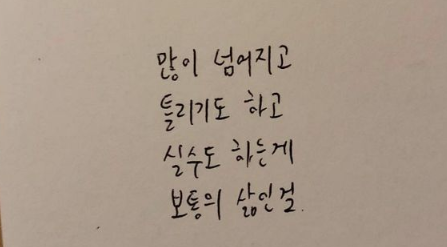 많이 넘어지고
틀리기도 하고
실수도 하는게
보통의 삶인걸.